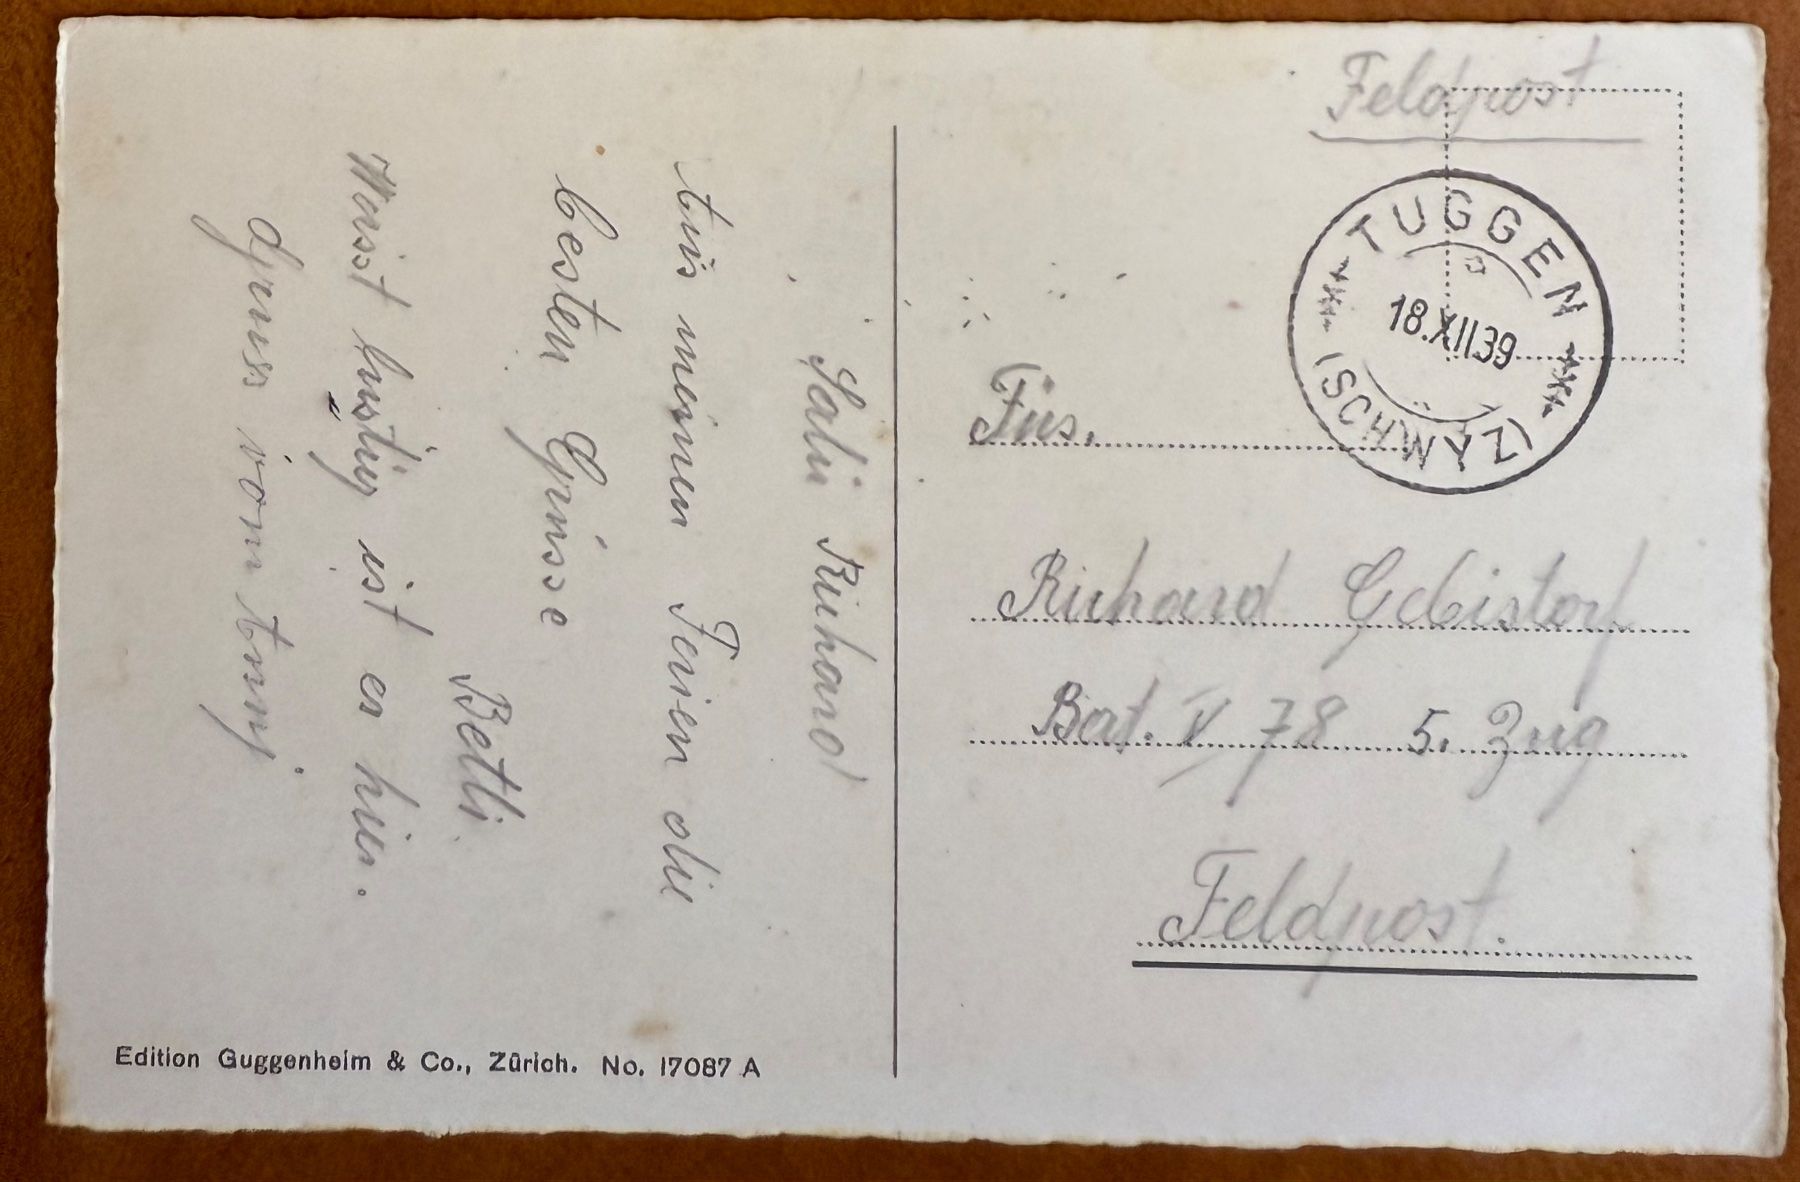 Feldpost
TUGGEN
18.XII39
(SCHWYZ)
Füs.
Richard Gebistorf
Bat. IV 78 5. Zug
Feldpost.
Salü Richard
Aus meinen Ferien die
besten Grüsse
Betli
Weisst lustig ist es hier.
Gruss vom Anny
Edition Guggenheim & Co., Zürich. No. 17087 A